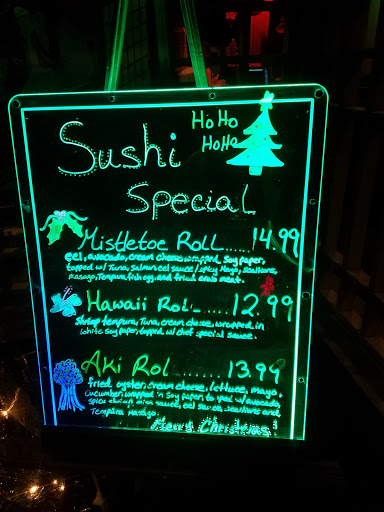 HoHo
HoHo
Sushi
Special
Mistletoe Roll.....14.99
eel, avocado, cream cheese wrapped, Soy paper,
topped w/ Tuna, Salmon eel sauce / spicy Mayo, Scallions,
Masago, Tempura fish egg, and fried crab meat.
Hawaii Rol.......12.99
Shrimp tempura, Tuna, cream cheese, wrapped in
white Soy paper, topped w/ chef special sauce.
Aki Rol.........13.99
fried oyster, cream cheese, lettuce, mayo,
Cucumber, wrapped in Soy paper, topped w/ avocado,
spicy sauce, eel sauce, scallions and
Tempura Masago.
Merry Christmas!